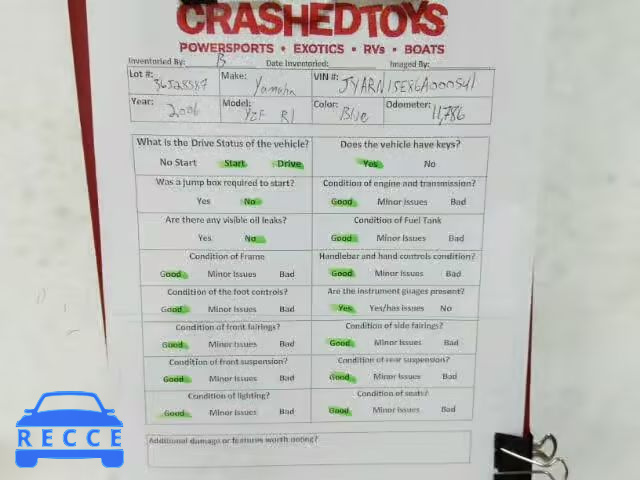 CRASHEDTOYS
POWERSPORTS • EXOTICS • RVs • BOATS
Inventoried By: B Date Inventoried: Imaged By:
Lot #: 36528587 Make: Yamaha VIN #: JYARN15E86A000541
Year: 2006 Model: YZF R1 Color: Blue Odometer: 11,786
What is the Drive Status of the vehicle? Does the vehicle have keys?
No Start Start Drive Yes No
Was a jump box required to start? Condition of engine and transmission?
Yes No Good Minor Issues Bad
Are there any visible oil leaks? Condition of Fuel Tank
Yes No Good Minor Issues Bad
Condition of Frame Handlebar and hand controls condition?
Good Minor Issues Bad Good Minor Issues Bad
Condition of the foot controls? Are the instrument guages present?
Good Minor Issues Bad Yes Yes/has issues No
Condition of front fairings? Condition of side fairings?
Good Minor Issues Bad Good Minor Issues Bad
Condition of front suspension? Condition of rear suspension?
Good Minor Issues Bad Good Minor Issues Bad
Condition of lighting? Condition of seats?
Good Minor Issues Bad Good Minor Issues Bad
Additional damage or features worth noting?
RECCE